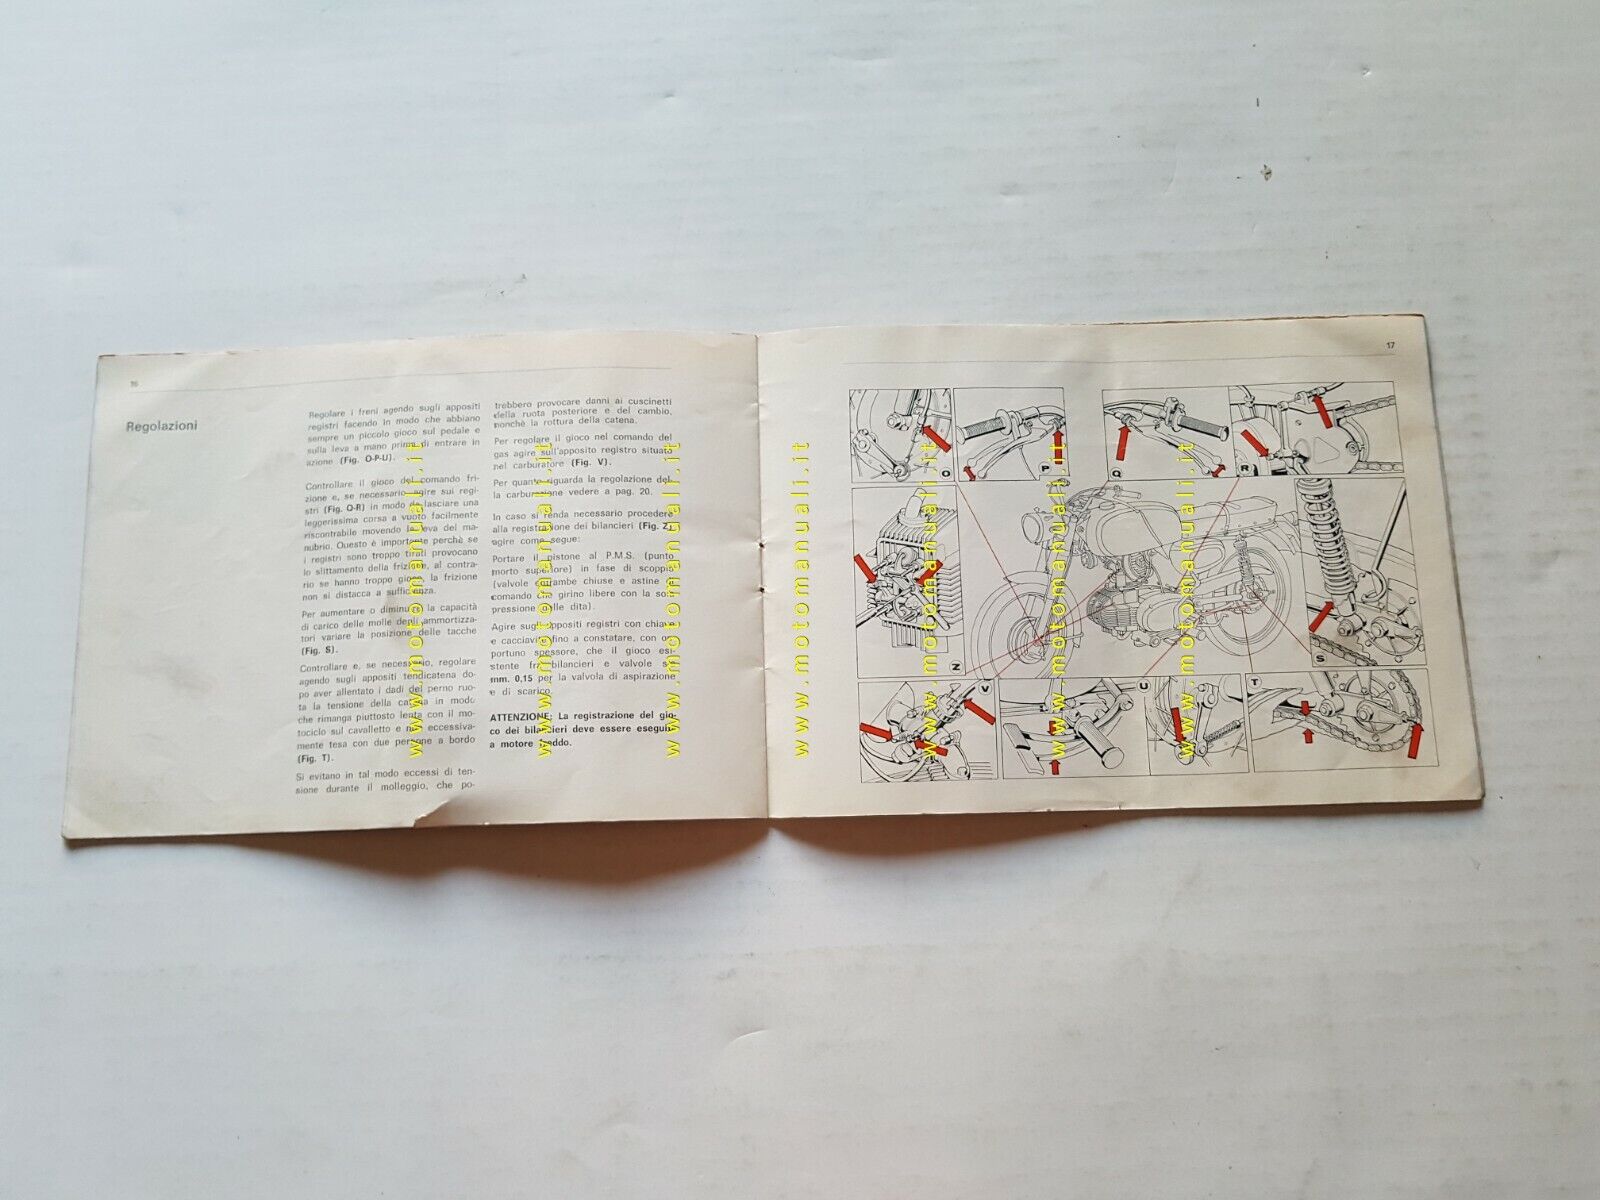 16
Regolazioni
Regolare i freni agendo sugli appositi
registri facendo in modo che abbiano
sempre un piccolo gioco sul pedale e
sulla leva a mano prima di entrare in
azione (Fig. O-P-U).
Controllare il gioco del comando fri-
zione e, se necessario agire sui regi-
stri (Fig. Q-R) in modo da lasciare una
leggerissima corsa a vuoto facilmente
riscontrabile movendo la leva del ma-
nubrio. Questo è importante perchè se
i registri sono troppo tirati provocano
lo slittamento della frizione, al contra-
rio se hanno troppo gioco, la frizione
non si distacca a sufficienza.
Per aumentare o diminuire la capacità
di carico delle molle degli ammortizza-
tori variare la posizione delle tacche
(Fig. S).
Controllare e, se necessario, regolare
agendo sugli appositi tendicatena do-
po aver allentato i dadi del perno ruo-
ta la tensione della catena in modo
che rimanga piuttosto lenta con il mo-
tociclo sul cavalletto e non eccessiva-
mente tesa con due persone a bordo
(Fig. T).
Si evitano in tal modo eccessi di ten-
sione durante il molleggio, che po-
trebbero provocare danni ai cuscinetti
della ruota posteriore e del cambio,
nonchè la rottura della catena.
Per regolare il gioco nel comando del
gas agire sull'apposito registro situato
nel carburatore (Fig. V).
Per quanto riguarda la regolazione del-
la carburazione vedere a pag. 20.
In caso si renda necessario procedere
alla registrazione dei bilancieri (Fig. Z)
agire come segue:
Portare il pistone al P.M.S. (punto
morto superiore) in fase di scoppio
(valvole entrambe chiuse e astine di
comando che girino libere con la sola
pressione delle dita).
Agire sugli appositi registri con chiave
e cacciavite fino a constatare, con op-
portuno spessore, che il gioco esi-
stente fra bilancieri e valvole sia
mm. 0,15 per la valvola di aspirazione
e di scarico.
ATTENZIONE: La registrazione del gio-
co dei bilancieri deve essere eseguita
a motore freddo.
www.motomanuali.it
www.motomanuali.it
www.motomanuali.it
17
O
P
Q
R
Z
S
V
U
T
www.motomanuali.it
www.motomanuali.it
www.motomanuali.it
www.motomanuali.it